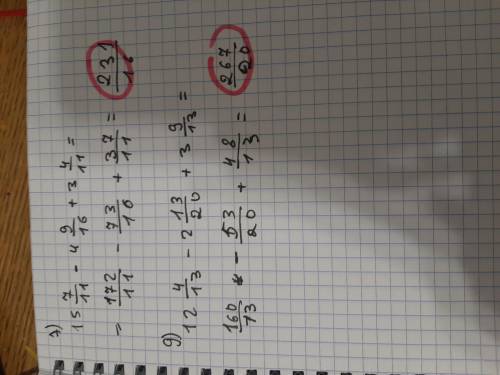 7)
15 7/11 - 4 9/16 + 3 4/11 =
= 172/11 - 73/16 + 37/11 = 231/16
9)
12 4/13 - 2 13/20 + 3 9/13 =
160/13 - 53/20 + 48/13 = 267/20